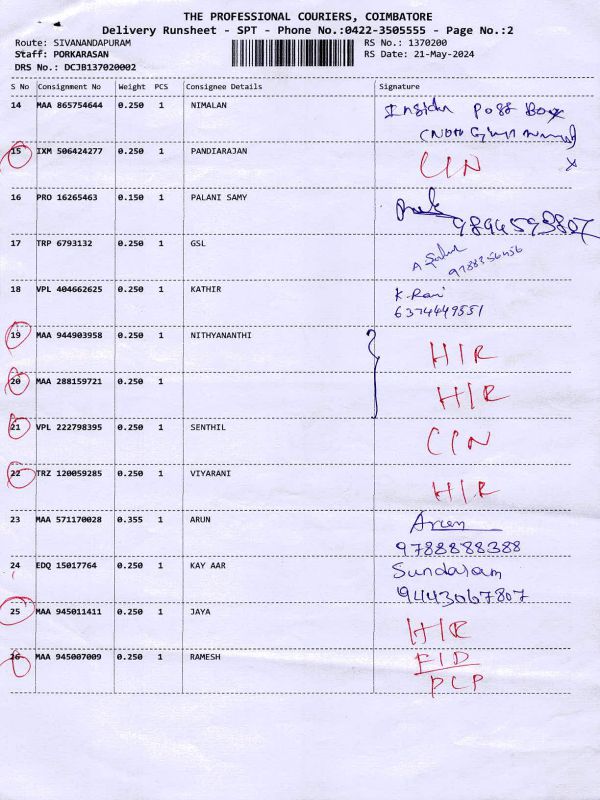 THE PROFESSIONAL COURIERS, COIMBATORE
Delivery Runsheet - SPT - Phone No.:0422-3505555 - Page No.:2
Route: SIVANANDAPURAM RS No.: 1370200
Staff: PORKARASAN RS Date: 21-May-2024
DRS No.: DCJB137020002
S No Consignment No Weight PCS Consignee Details Signature
14 MAA 865754644 0.250 1 NIMALAN Post Box
15 IXM 506424277 0.250 1 PANDIARAJAN CIN x
16 PRO 16265463 0.150 1 PALANI SAMY
9894593807
17 TRP 6793132 0.250 1 GSL
9788356456
18 VPL 404662625 0.250 1 KATHIR K. Rani
6374449551
19 MAA 944903958 0.250 1 NITHYANANTHI HIR
20 MAA 288159721 0.250 1 HIR
21 VPL 222798395 0.250 1 SENTHIL CIN
22 TRZ 120059285 0.250 1 VIYARANI HIR
23 MAA 571170028 0.355 1 ARUN Arun
9788888388
24 EDQ 15017764 0.250 1 KAY AAR Sundaram
9443067807
25 MAA 945011411 0.250 1 JAYA HIR
26 MAA 945007009 0.250 1 RAMESH FID
PCP